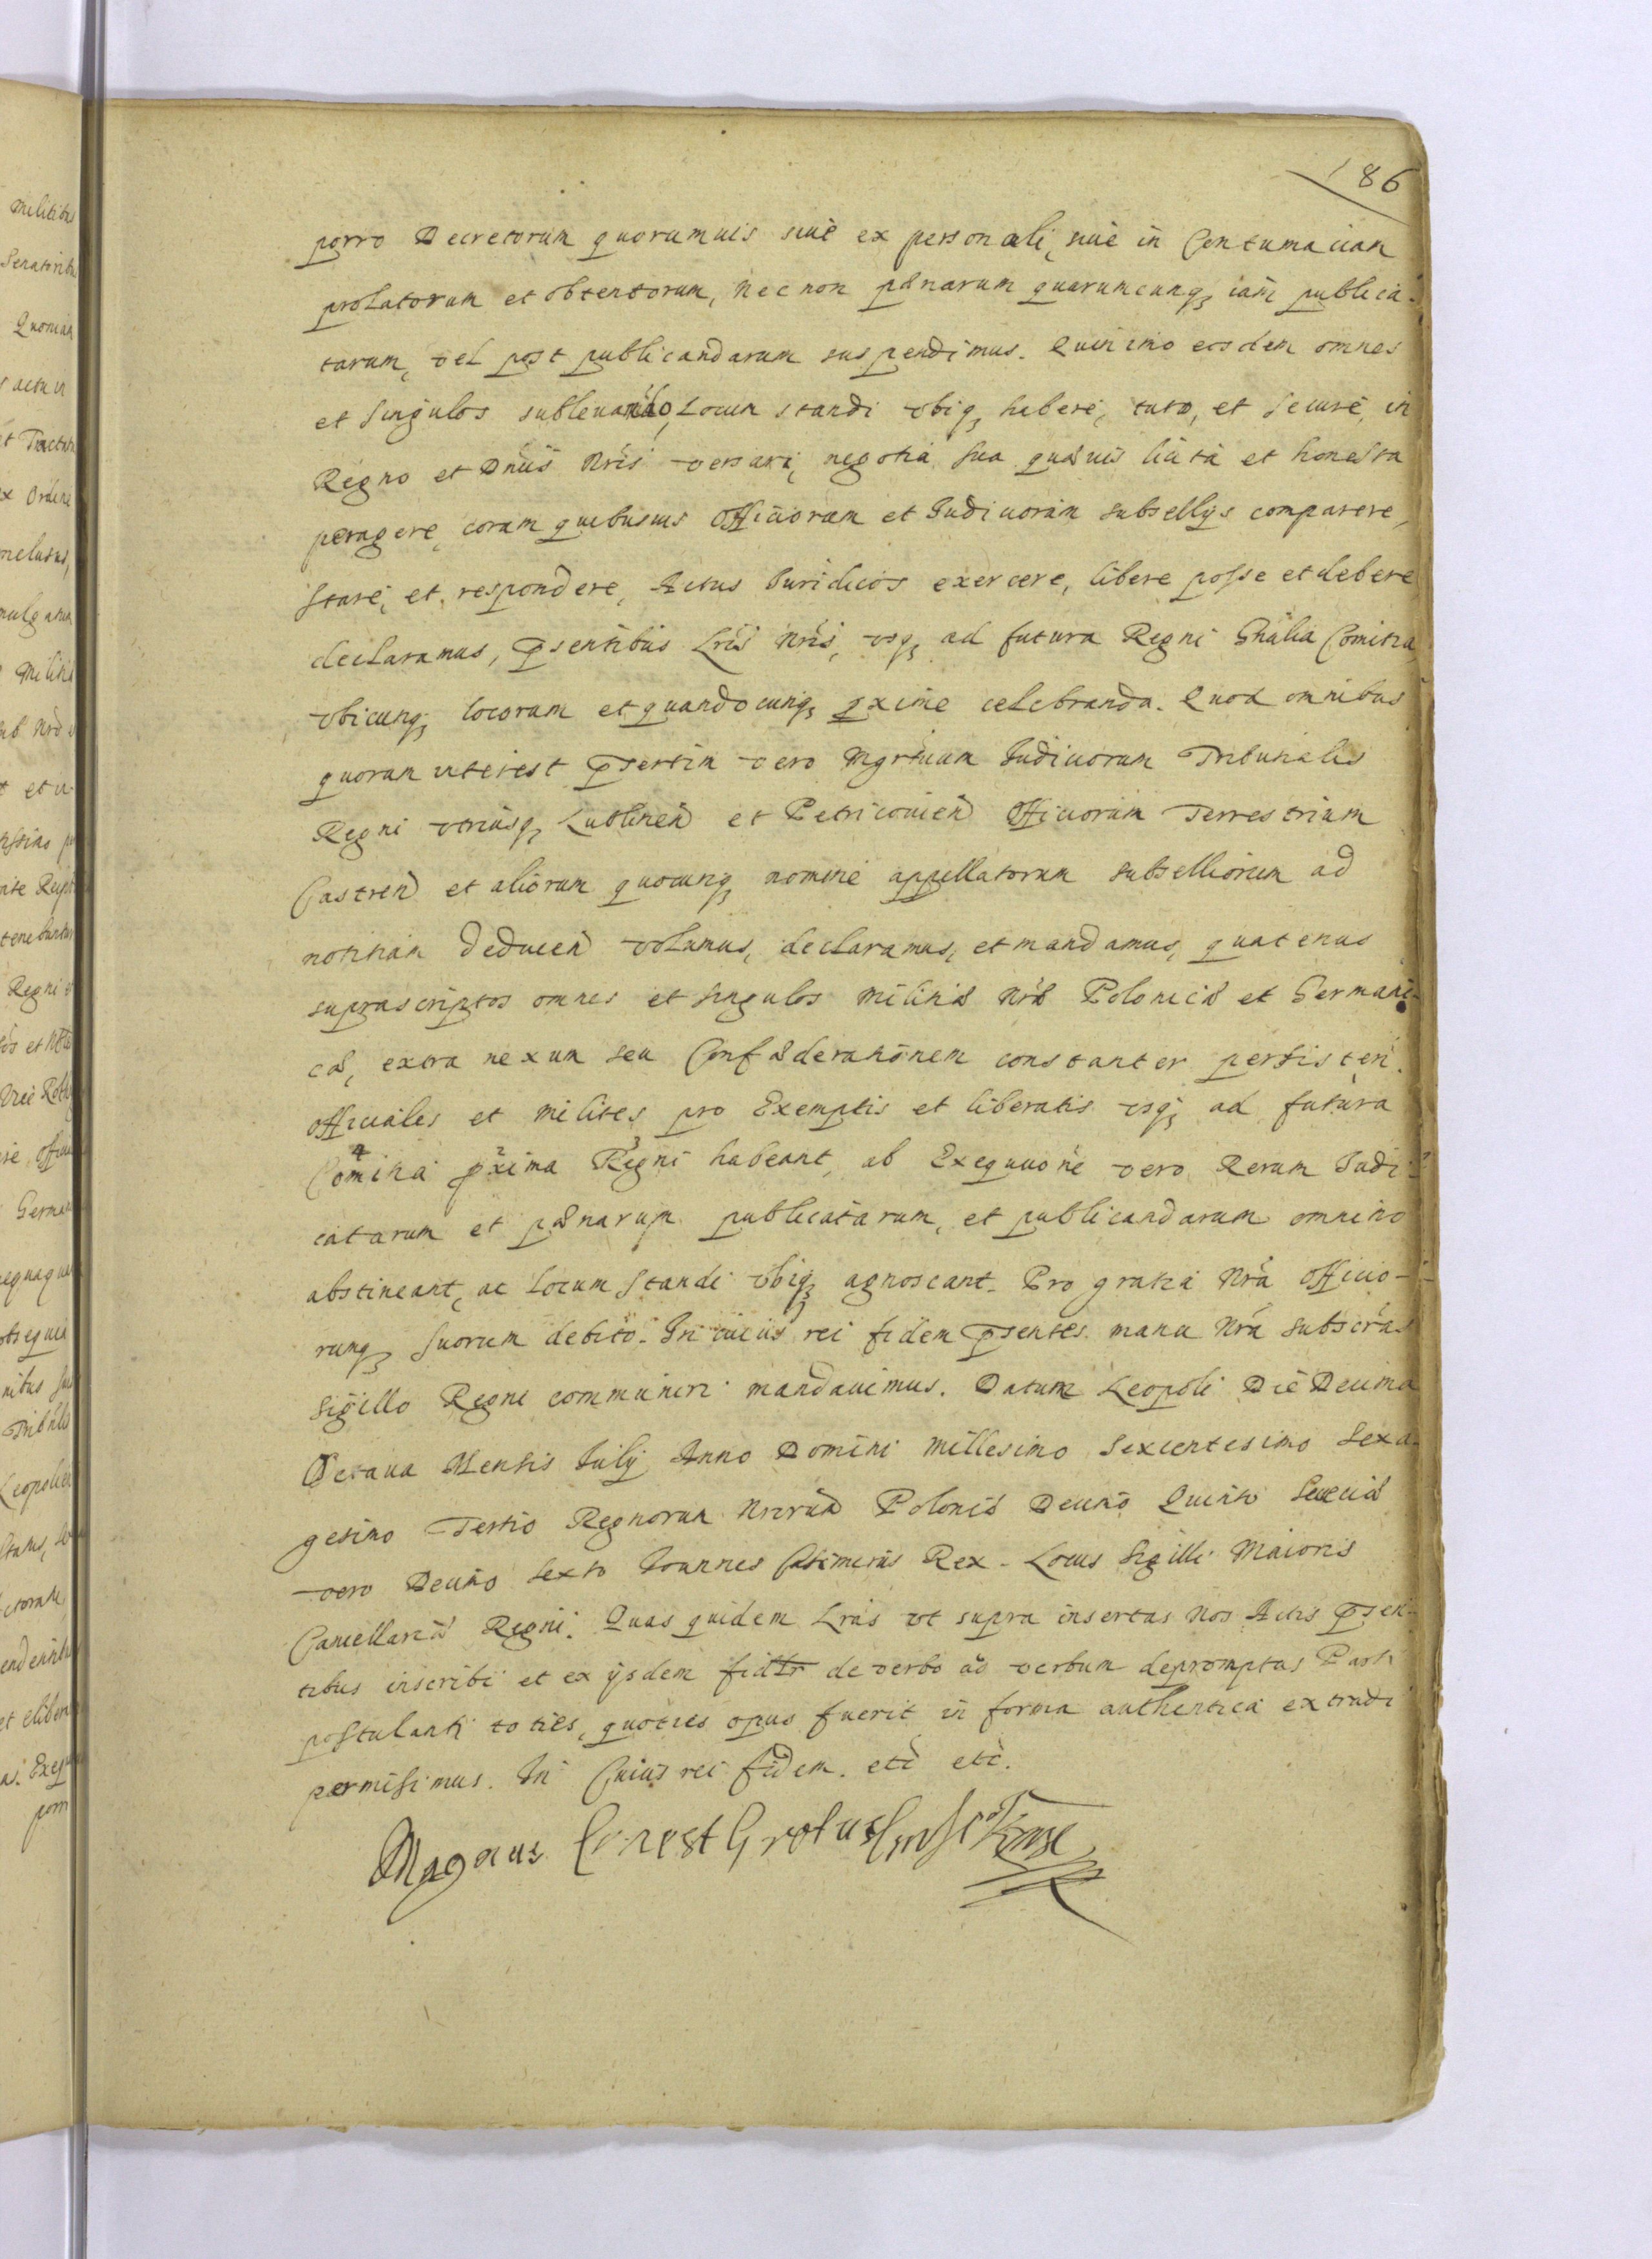 186
porro Decretorum quorumuis siue ex personali, siue in Contumaciam
prolatorum et obtentorum, nec non pænarum quarumcunq, iam publica-
tarum, vel post publicandarum suspendimus. Quinimo eosdem omnes
et singulos subleuando, Locum standi vbiq, habere, tuto, et secure, in
Regno et Dnijs Nris versari, negotia sua quæuis licita et honesta
peragere, coram quibusuis Officiorum et Iudiciorum subsellijs comparere,
stare, et respondere, Actus Iuridicos exercere, libere posse et debere
declaramus, pсentibus Lris Nris, vsq, ad futura Regni Gnalia Comitia,
vbicunq, locorum et quandocunq, pxime celebranda. Quod omnibus
quorum interest psertim vero Mgrtuum Iudiciorum Tribunalis
Regni vtriusq, Lublinen et Petricouien Officiorum Terrestrium
Castren et aliorum quocunq, nomine appellatorum subselliorum ad
notitiam deducen volumus, declaramus, et mandamus, quatenus
suprascriptos omnes et singulos militiæ Nræ Polonicæ et Germani-
cæ, extra nexum seu Confæderationem constanter persisten.
officiales et milites pro Exemptis et liberatis vsq, ad futura
Comitia pxima Regni habeant, ab Exequutione vero Rerum Iudi-
catarum et pænarum publicatarum, et publicandarum omnino
abstineant, ac locum standi vbiq, agnoscant. Pro gratia Nra officio-
rumq, suorum debito. In cuius rei fidem psentes manu Nra subscras
Sigillo Regni communiri mandauimus. Datum Leopoli Die Decima
Octaua Mensis Iulij Anno Domini Millesimo Sexcentesimo Sexa-
gesimo Tertio Regnorum Nrorum Poloniæ Decimo Quinto Sueciæ
vero Decimo Sexto Ioannes Casimirus Rex. Locus Sigilli Maioris
Cancellariæ Regni. Quas quidem Lras vt supra insertas Nos Actis psen-
tibus inscribi et ex ijsdem fidlr de verbo ad verbum depromptas Parti
postulanti toties, quoties opus fuerit in forma authentica extradi
permisimus. In Cuius rei fidem. etc etc.
Magnus Ernest Grotus